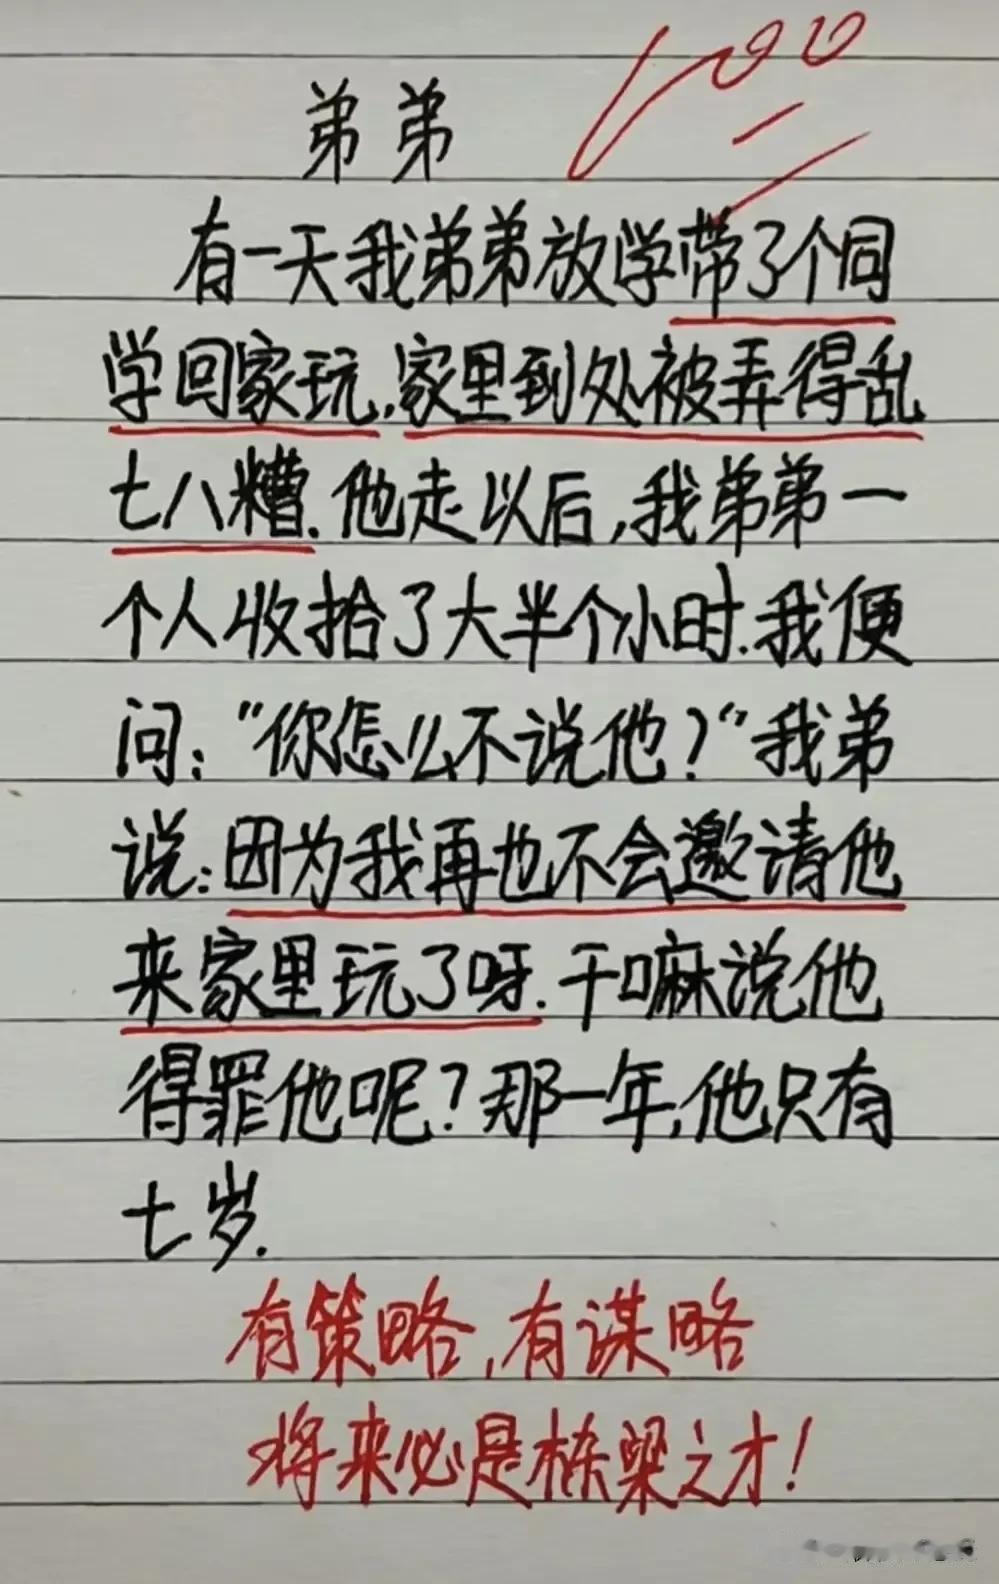 100
弟弟
有一天我弟弟放学带了个同
学回家玩,家里到处被弄得乱
七八糟.他走以后,我弟弟一
个人收拾了大半个小时.我便
问:"你怎么不说他?"我弟
说:因为我再也不会邀请他
来家里玩了呀.干嘛说他
得罪他呢?那一年,他只有
七岁.
有策略,有谋略
将来必是栋梁之才!